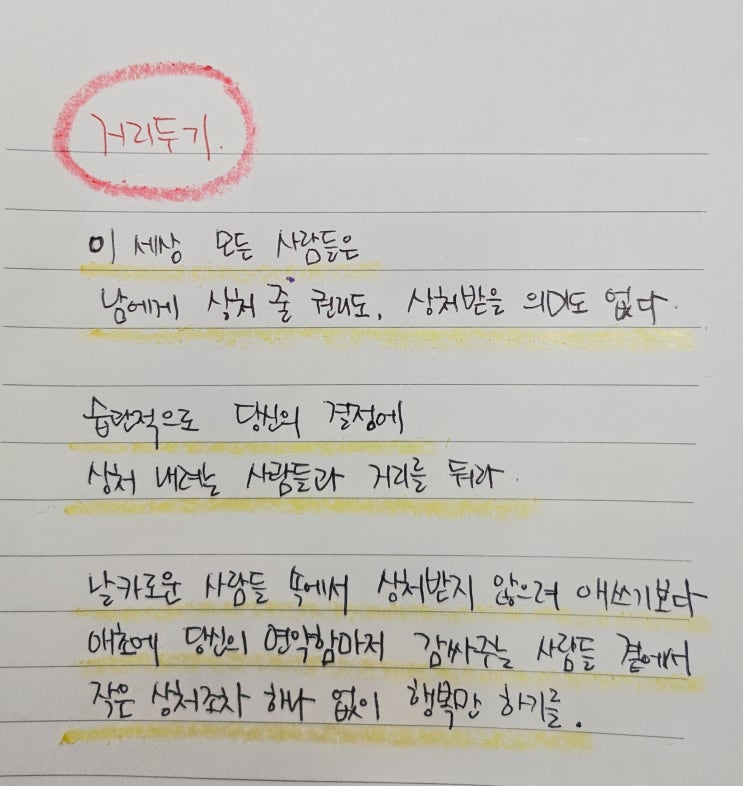 거리두기.
이 세상 모든 사람들은
남에게 상처 줄 권리도, 상처받을 의미도 없다.
습관적으로 당신의 결정에
상처 내려는 사람들과 거리를 둬라.
날카로운 사람들 속에서 상처받지 않으려 애쓰기보다
애초에 당신의 연약함마저 감싸주는 사람들 곁에서
작은 상처조차 하나 없이 행복만 하기를.